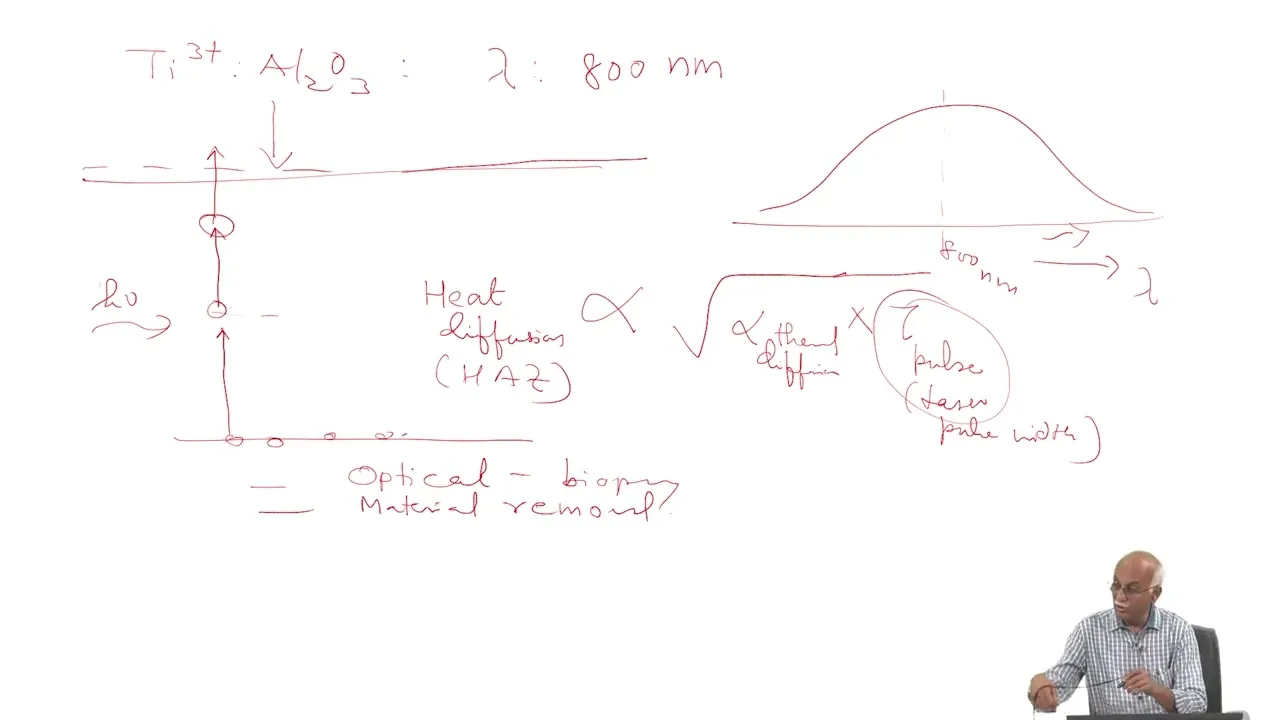 Ti³⁺ : Al₂O₃ : λ : 800 nm
800 nm
λ
hυ
Heat
diffusion
(HAZ)
∝ √
α thermal
diffusion
×
τ
pulse
(Laser
pulse width)
— Optical - biopsy
— Material removal